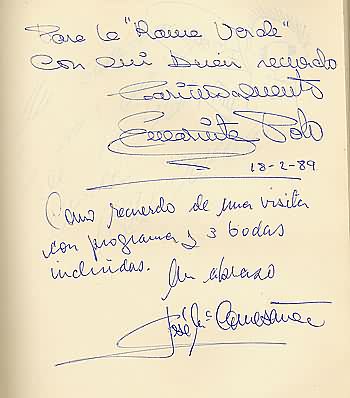 Para la "Rama Verde"
con mi buen recuerdo
Cariñosamente
Encarnita Polo
18-2-89
Como recuerdo de una visita
con programa y 3 bodas
incluidas. Un abrazo
José Mª Comesaña